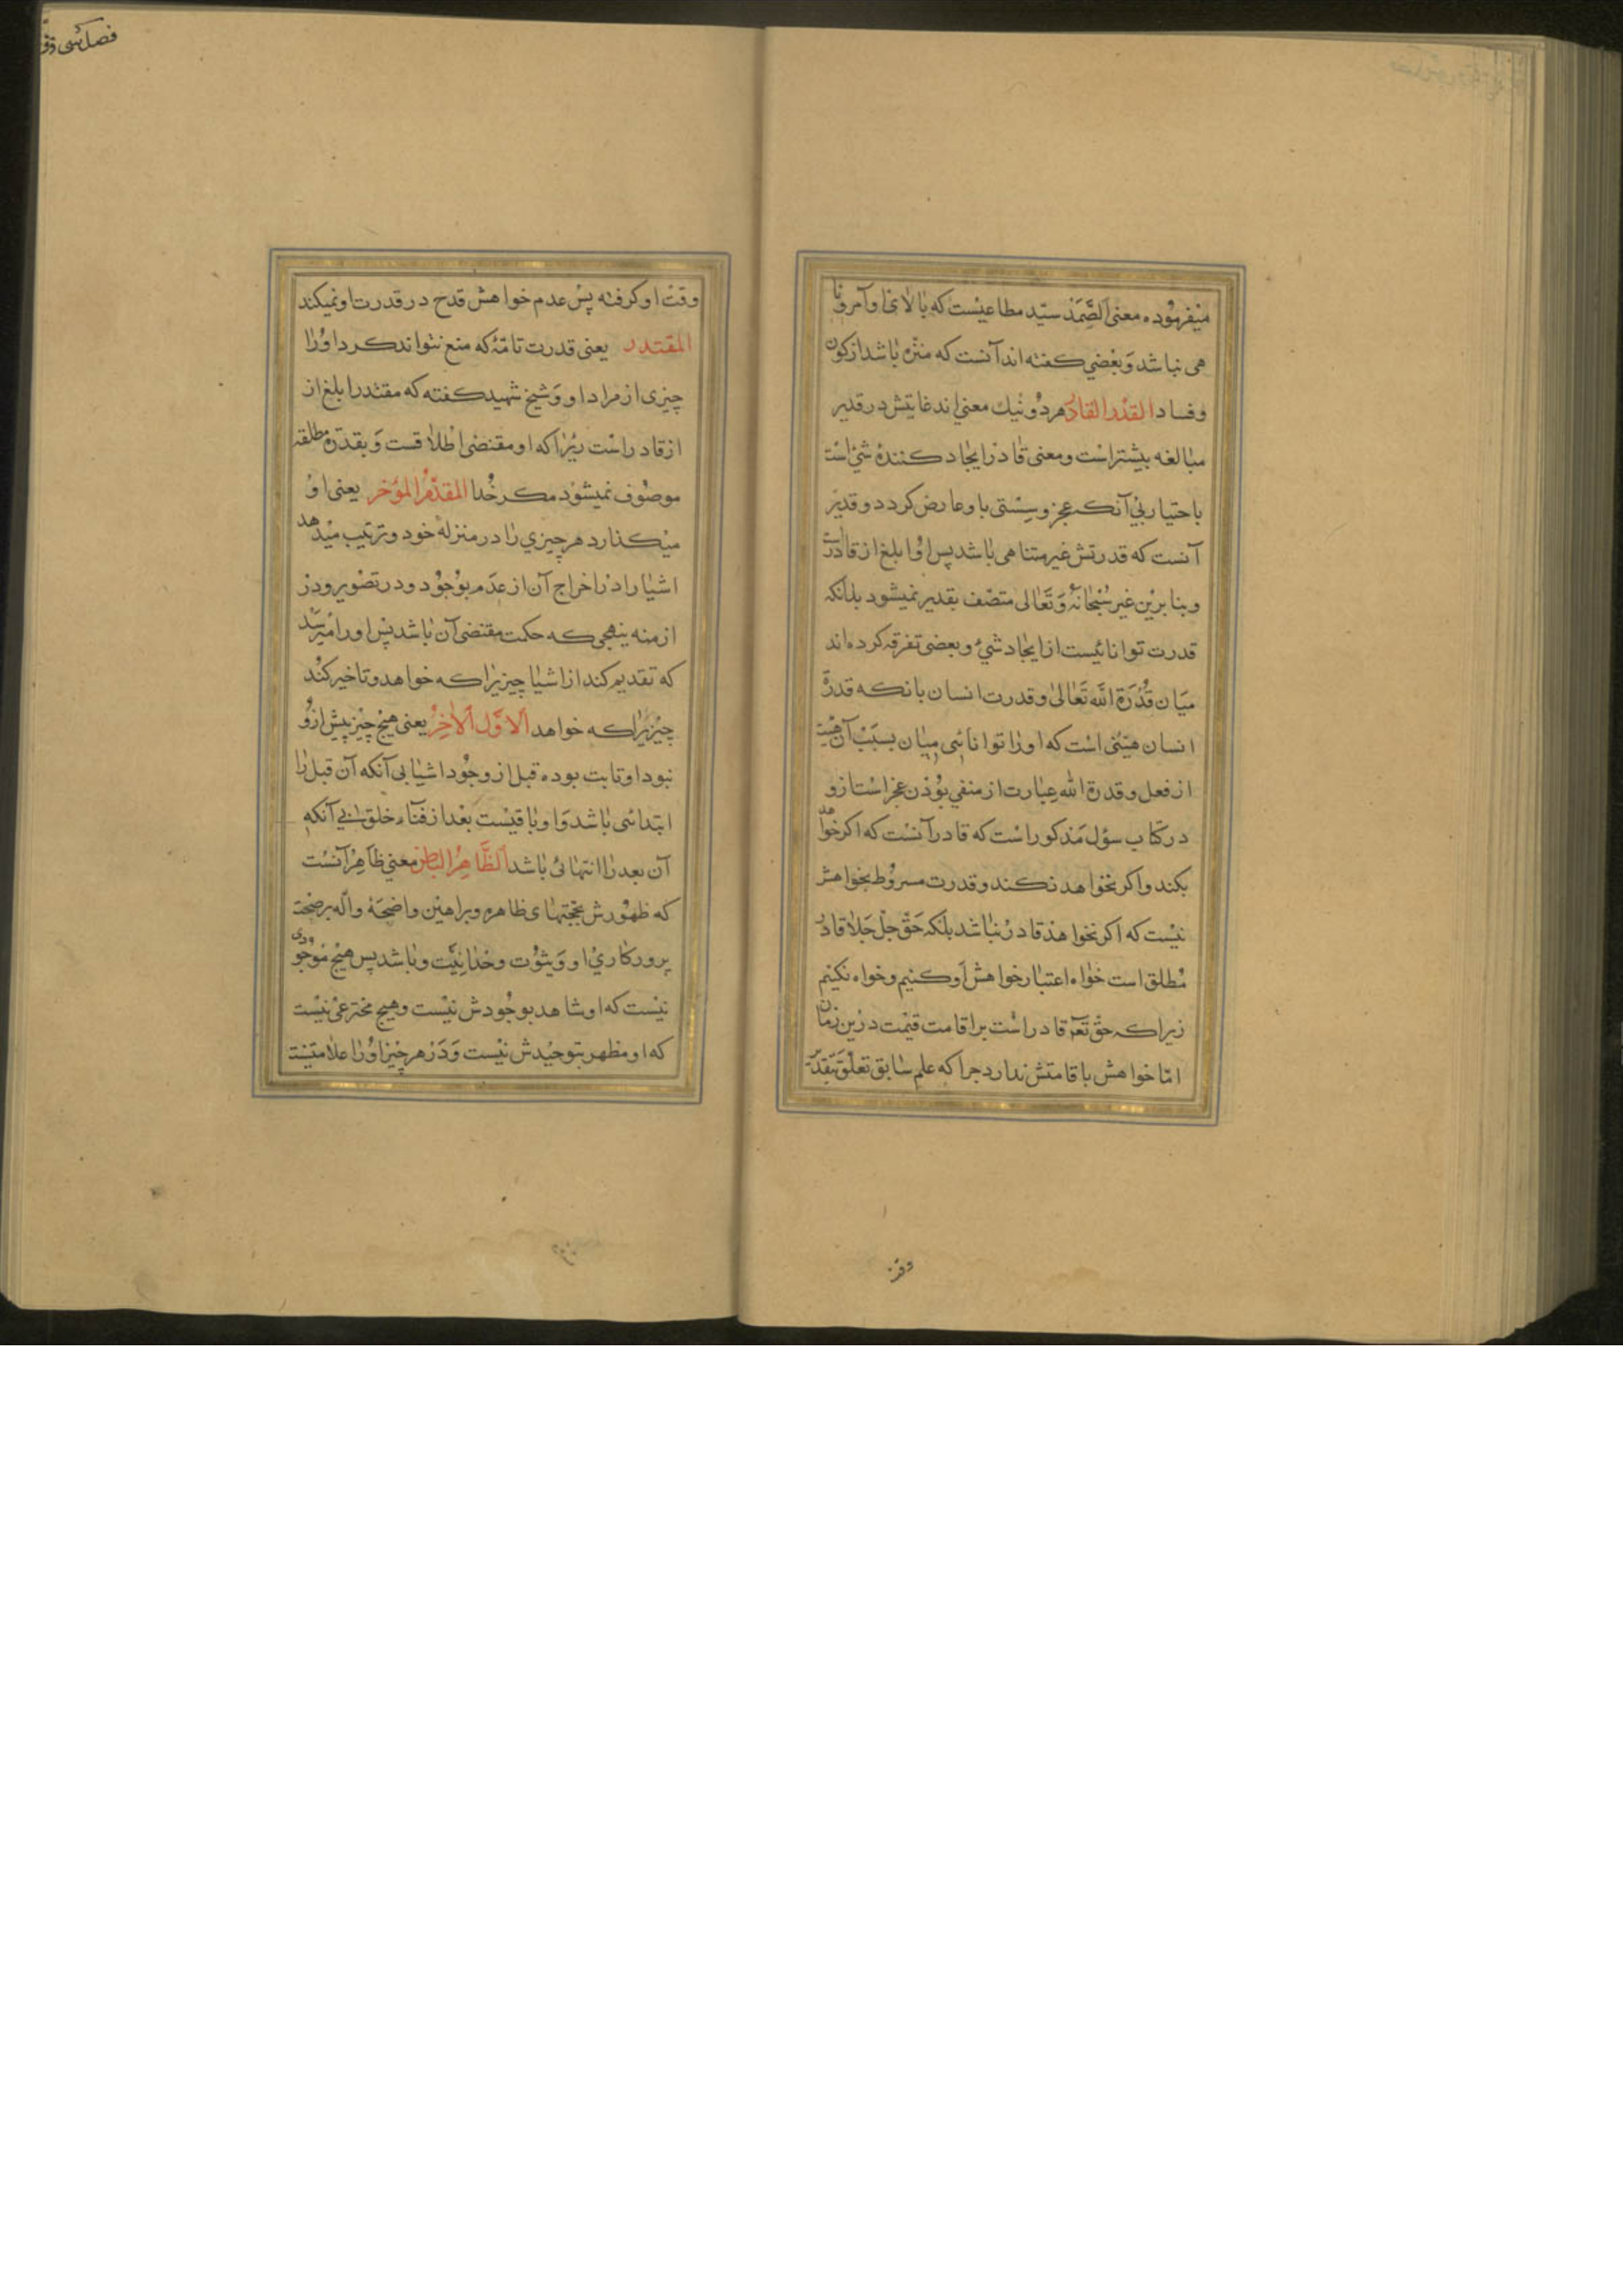 میفرموده معنی الصَّمَد سیّد مطاعیست که بالای او آمر و نا
هی نباشد و بعضی کفته اند آنست که منزه باشد از کون
و فساد القدیر القادر هر دو بیك معنی اند غایتش در قدیر
مبالغه بیشتر است و معنی قادر ایجاد کنندهٔ شئ است
باختیار بی آنکه عجز و سستی باو عارض کردد و قدیر
آنست که قدرتش غیر متناهی باشد پس او ابلغ از قادرست
و بنا برین غیر سُبحانَهُ وَ تَعالی متصّف بقدیر نمیشود بدانکه
قدرت توانائیست از ایجاد شئ و بعضی تفرقه کرده اند
میان قُدْرَة اللّه تَعالیٰ و قدرت انسان بانکه قدرة
انسان هیئتی است که او را توانائی میان بسبب آن هیئت
از فعل و قدرة الله عبارت از منفی بودن عجز است ازو
در کتاب سؤل مذکور است که قادر آنست که اکر خواهد
بکند و اکر نخواهد نکند و قدرت مسروط بخواهش
نیست که اکر نخواهد قادر نباشد بلکه حَقّ جلّ جَلا قادر
مُطلق است خواه اعتبار خواهش او کنیم و خواه نکنیم
زیرا که حق تعه قادر است بر اقامت قیمت درین زمان
امّا خواهش باقامتش ندارد جرا که علم سابق تعلّق بَقدَر
وقت
وقت او کرفته پس عدم خواهش قدح در قدرت او نمیکند
المقتدر یعنی قدرت تامّهٔ که منع نتواند کرد او را
چیزی از مراد او وَ شیخ شهید کفته که مقتدر ابلغ از
از قادر است زیرا که او مقتضی اطلاقست وَ بقدرة مطلقه
موصوف نمیشود مکر خُدا المقدّمُ المؤخر یعنی او
میکذارد هر چیزی را در منزلهٔ خود و ترتیب میدهد
اشیا را در اخراج آن از عدَم بوُجوُد و در تصویر و در
ازمنه بنهجی که حکمت مقتضی آن باشد پس او را میرسد
که تقدیم کند از اشیا چیزیرا که خواهد و تاخیر کند
چیزیرا که خواهد اَلاوَّل اَلاٰخِرُ یعنی هیچ چیز پیش ازو
نبود او ثابت بوده قبل از وجوُد اشیا بی آنکه آن قبل را
ابتدائی باشد وَ او باقیست بعد از فنآء خلق بی آنکه
آن بعد را انتهائی باشد اَلظَّاهِرُ الباطن معنی ظاهِر آنست
که ظهوُرش بحجّتهای ظاهره و براهین واضحَهٔ والّه بر صحّت
پرورکاری او وَ بثوُت وحدانیّت و باشد پس هیچ موجوُدی
نیست که او شاهد بوجُودش نیست و هیچ مخترعی نیست
که او مظهر بتوحیدش نیست وَ دَر هر چیز او را علامتیست